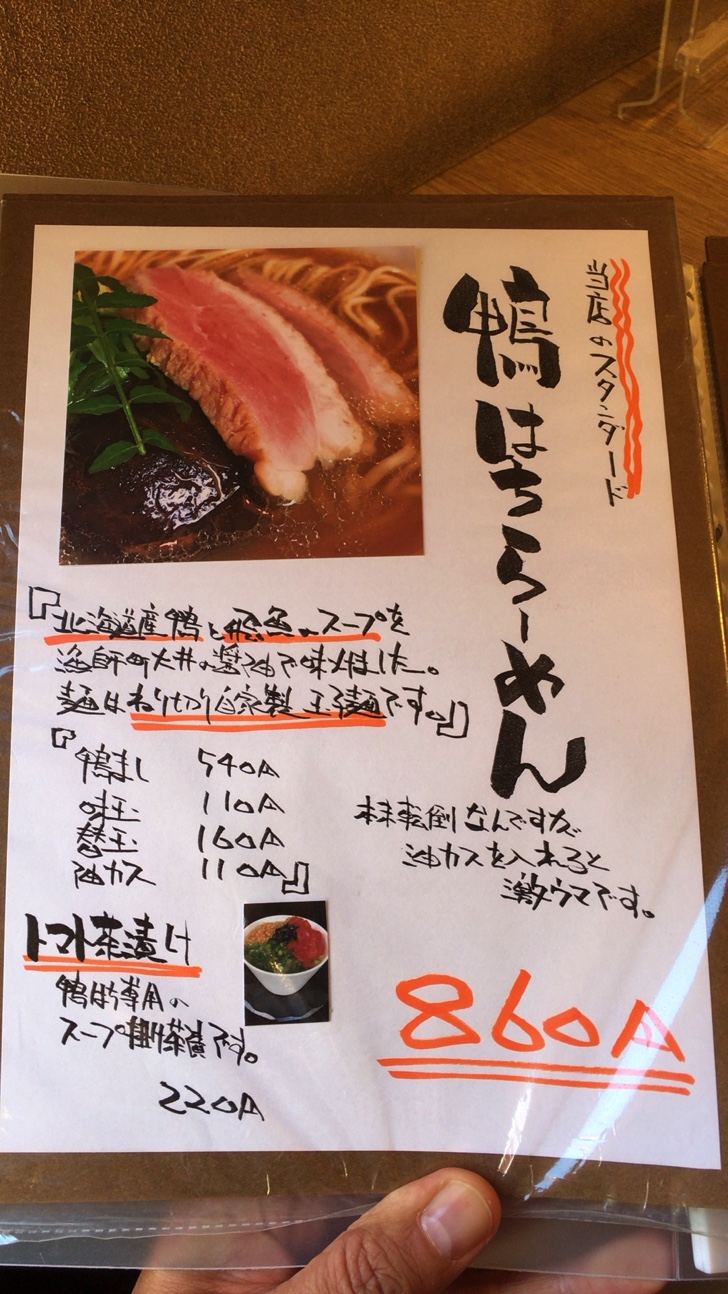 当店のスタンダード
鴨はちらーめん
『北海道産鴨と飛魚のスープを
漁師町大井の醤油で味付けました。
麺はねり切り自家製玉子麺です。』
『鴨まし 540円
味玉 110円
替玉 160円
油カス 110円』
本末転倒なんですが
油カスを入れると
激ウマです。
トマト茶漬け
鴨はち専用の
スープ掛け茶漬です。
220円
860円